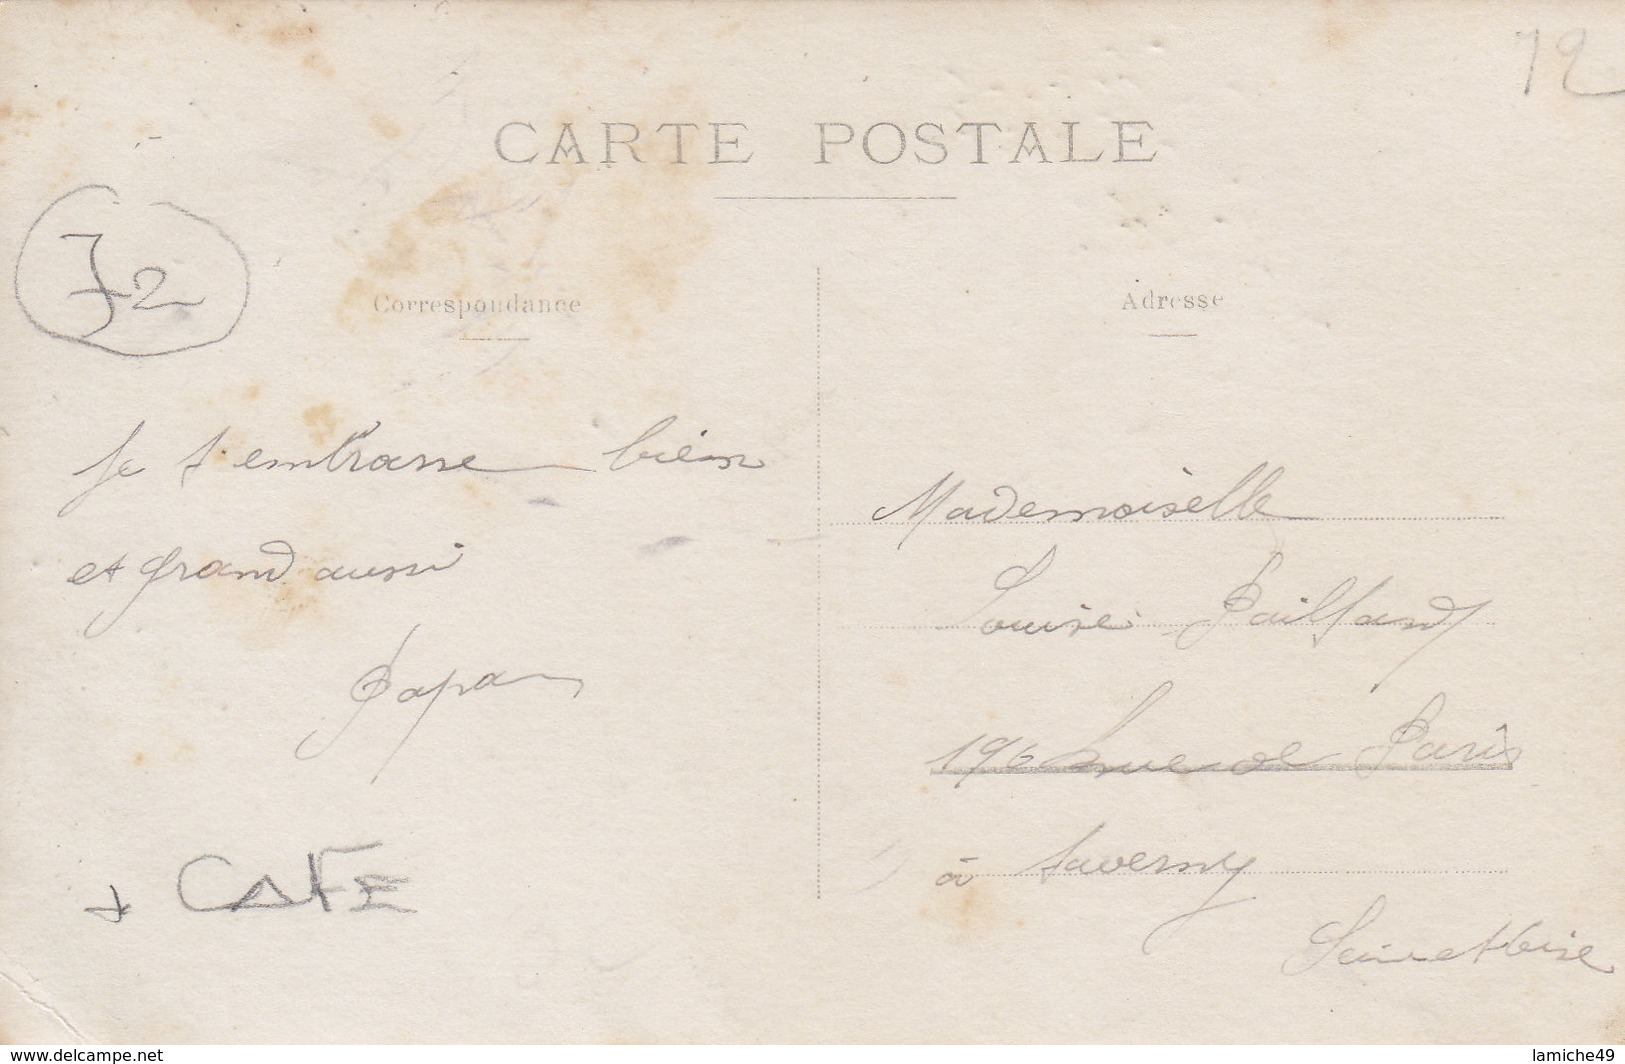 72
CARTE POSTALE
72
Correspondance
Adresse
Je t'embrasse bien
et grand aussi
Papa
+ CAFE
Mademoiselle
Louise Paillard
196 Rue de Paris
à Taverny
Seine et Oise
www.delcampe.net
lamiche49